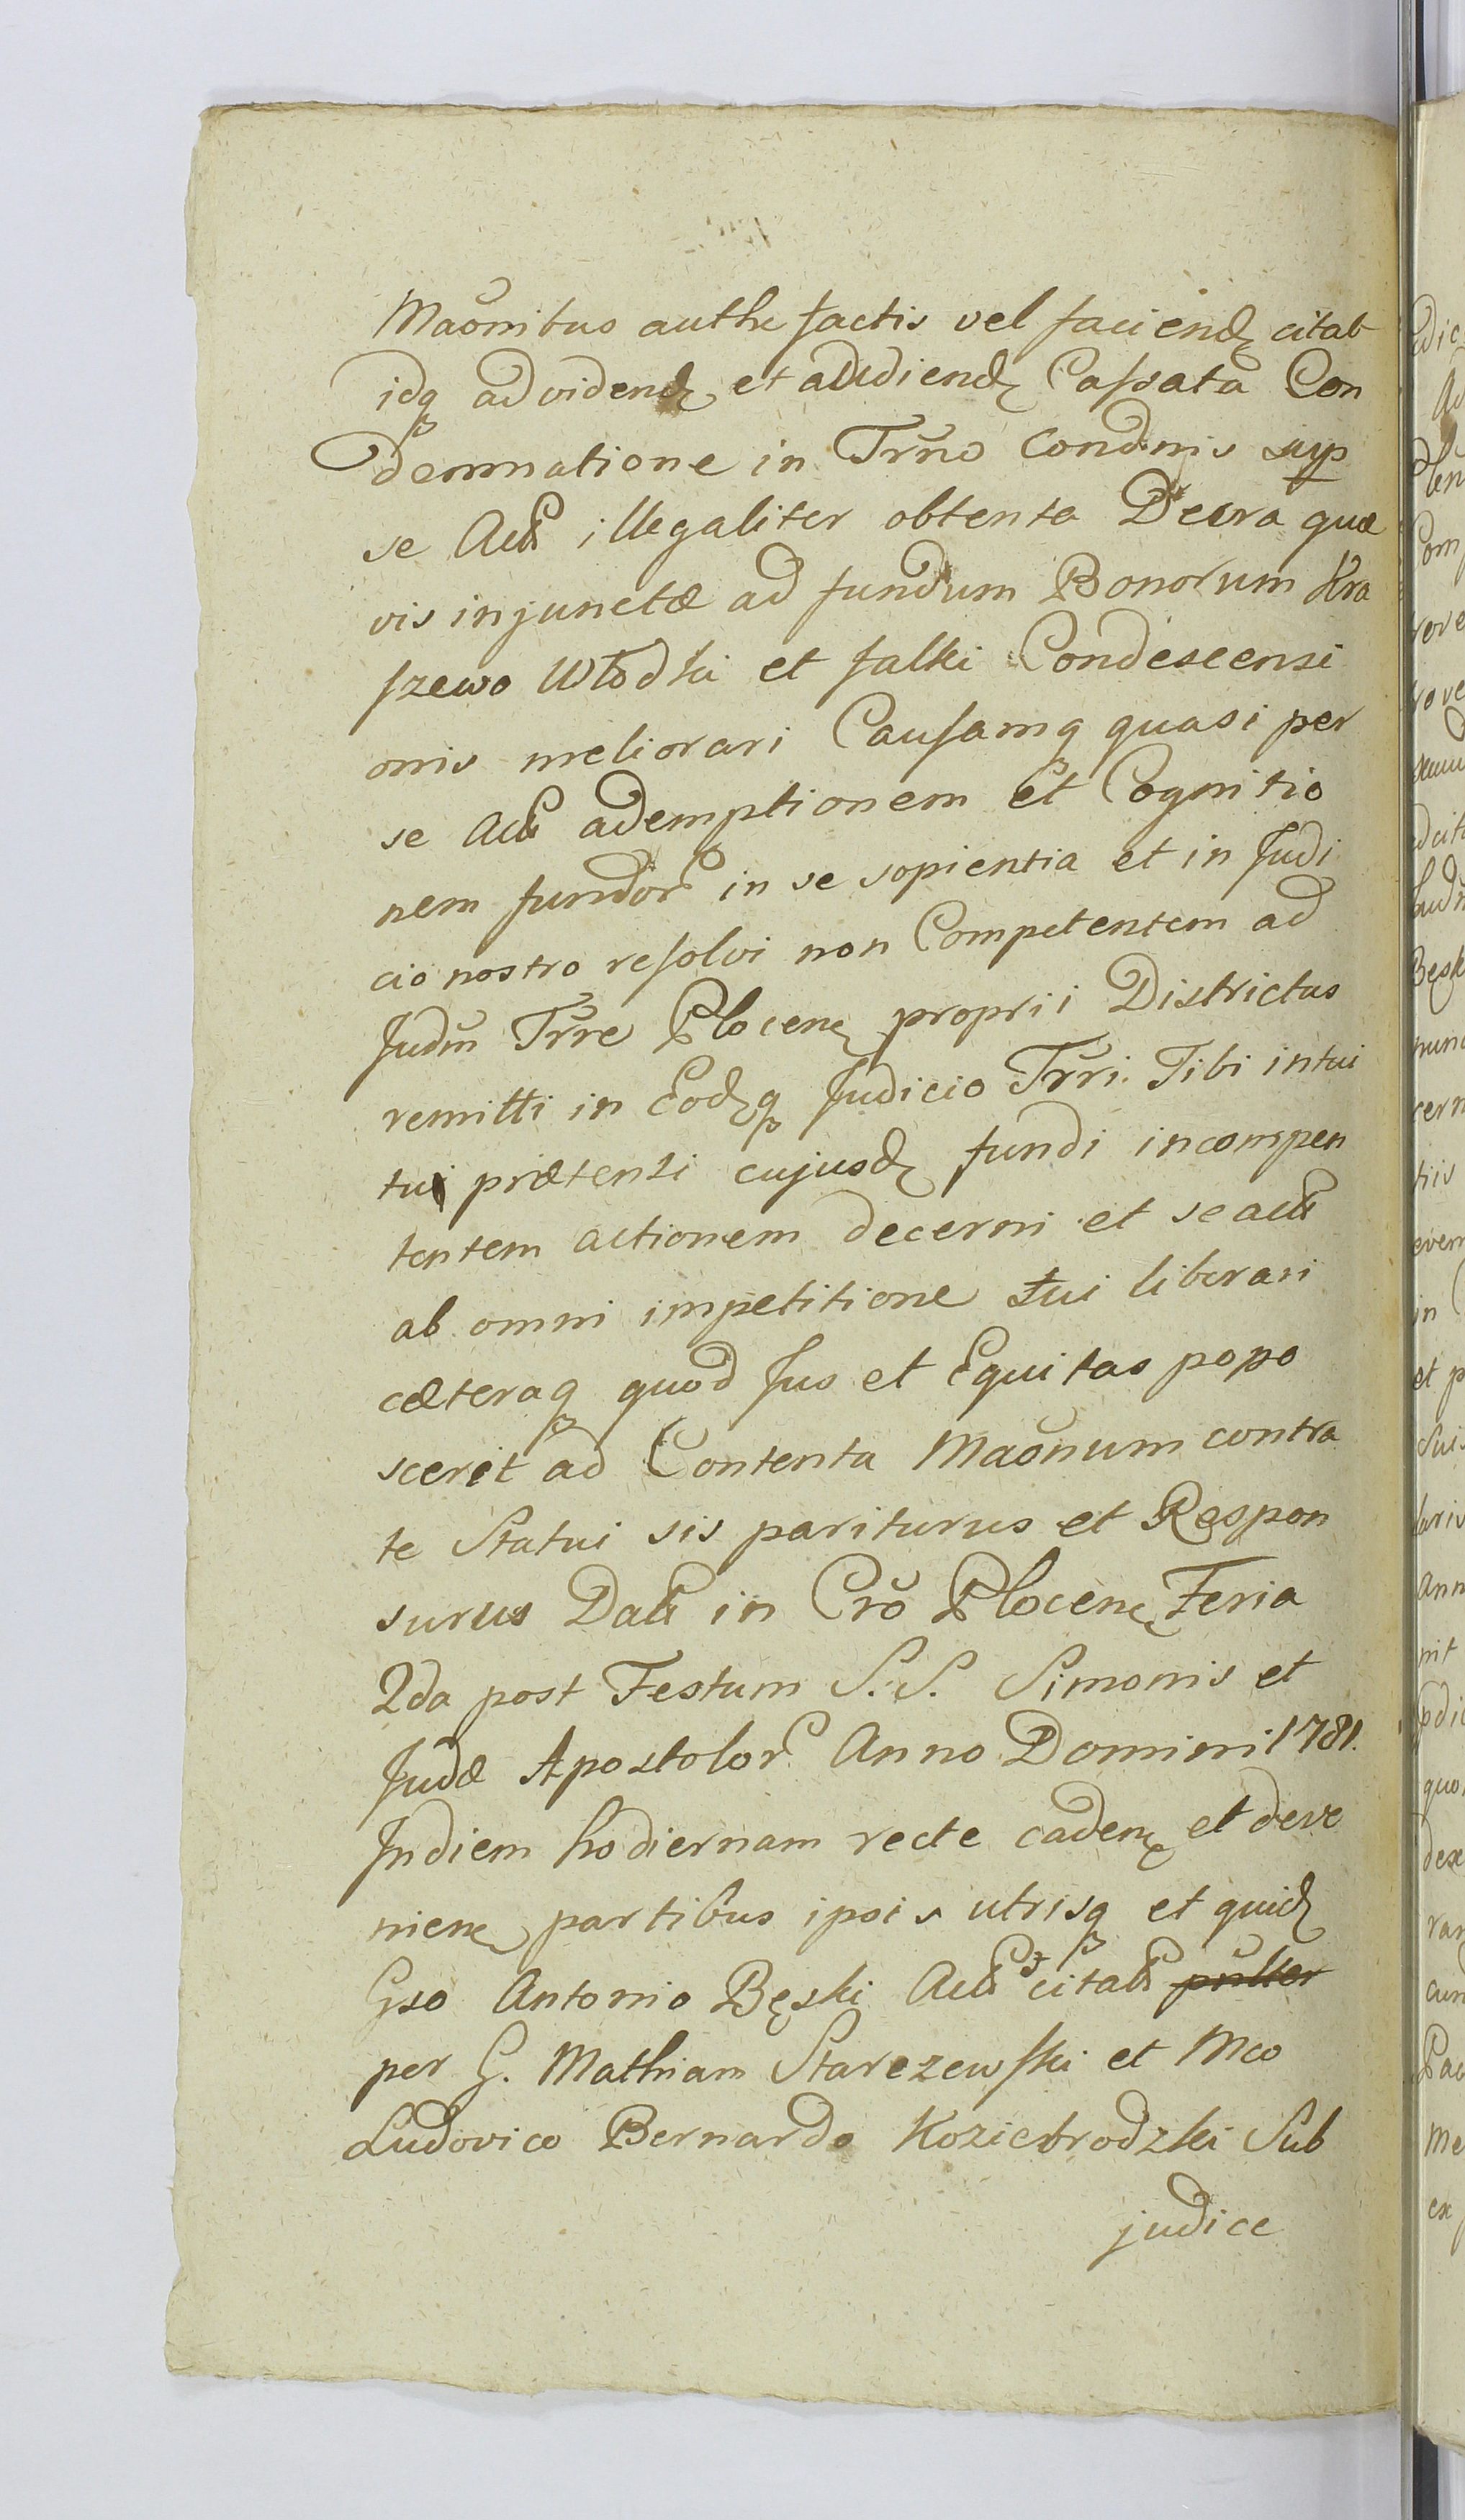 Maõnibus authe factis vel faciend citat
idq ad vidend et audiend Cassata Con
demnatione in Trno Condnis sup
se Act illegaliter obtenta Decra quæ
vis injunctæ ad fundum Bonorum Kra
szewo Włodki et falki Condescensi
onis meliorari Causamq quasi per
se Act ademptionem et Cognitio
nem fundor in se sopientia et in Judi
cio nostro resolvi non Competentem ad
Judm Trre Plocen proprii Districtus
remitti in Eodq Judicio Trri. Tibi intui
tui prætensi cujusd fundi incompen
tentem actionem decerni et se act
ab omni impetitione tui liberari
cæteraq quod Jus et Equitas popo
scerit ad Contenta Maõnum contra
te Statui sis pariturus et Respon
surus Dat in Crõ Plocen Feria
2da post Festum S.S. Simonis et
Judæ Apostolor Anno Domini 1781.
In diem hodiernam recte caden et deve
nien partibus ipsis utrisq et quid
Gso Antonio Bęski Act citat pulter
per G. Mathiam Starczewski et Mco
Ludovico Bernardo Koziebrodzki Sub
judice